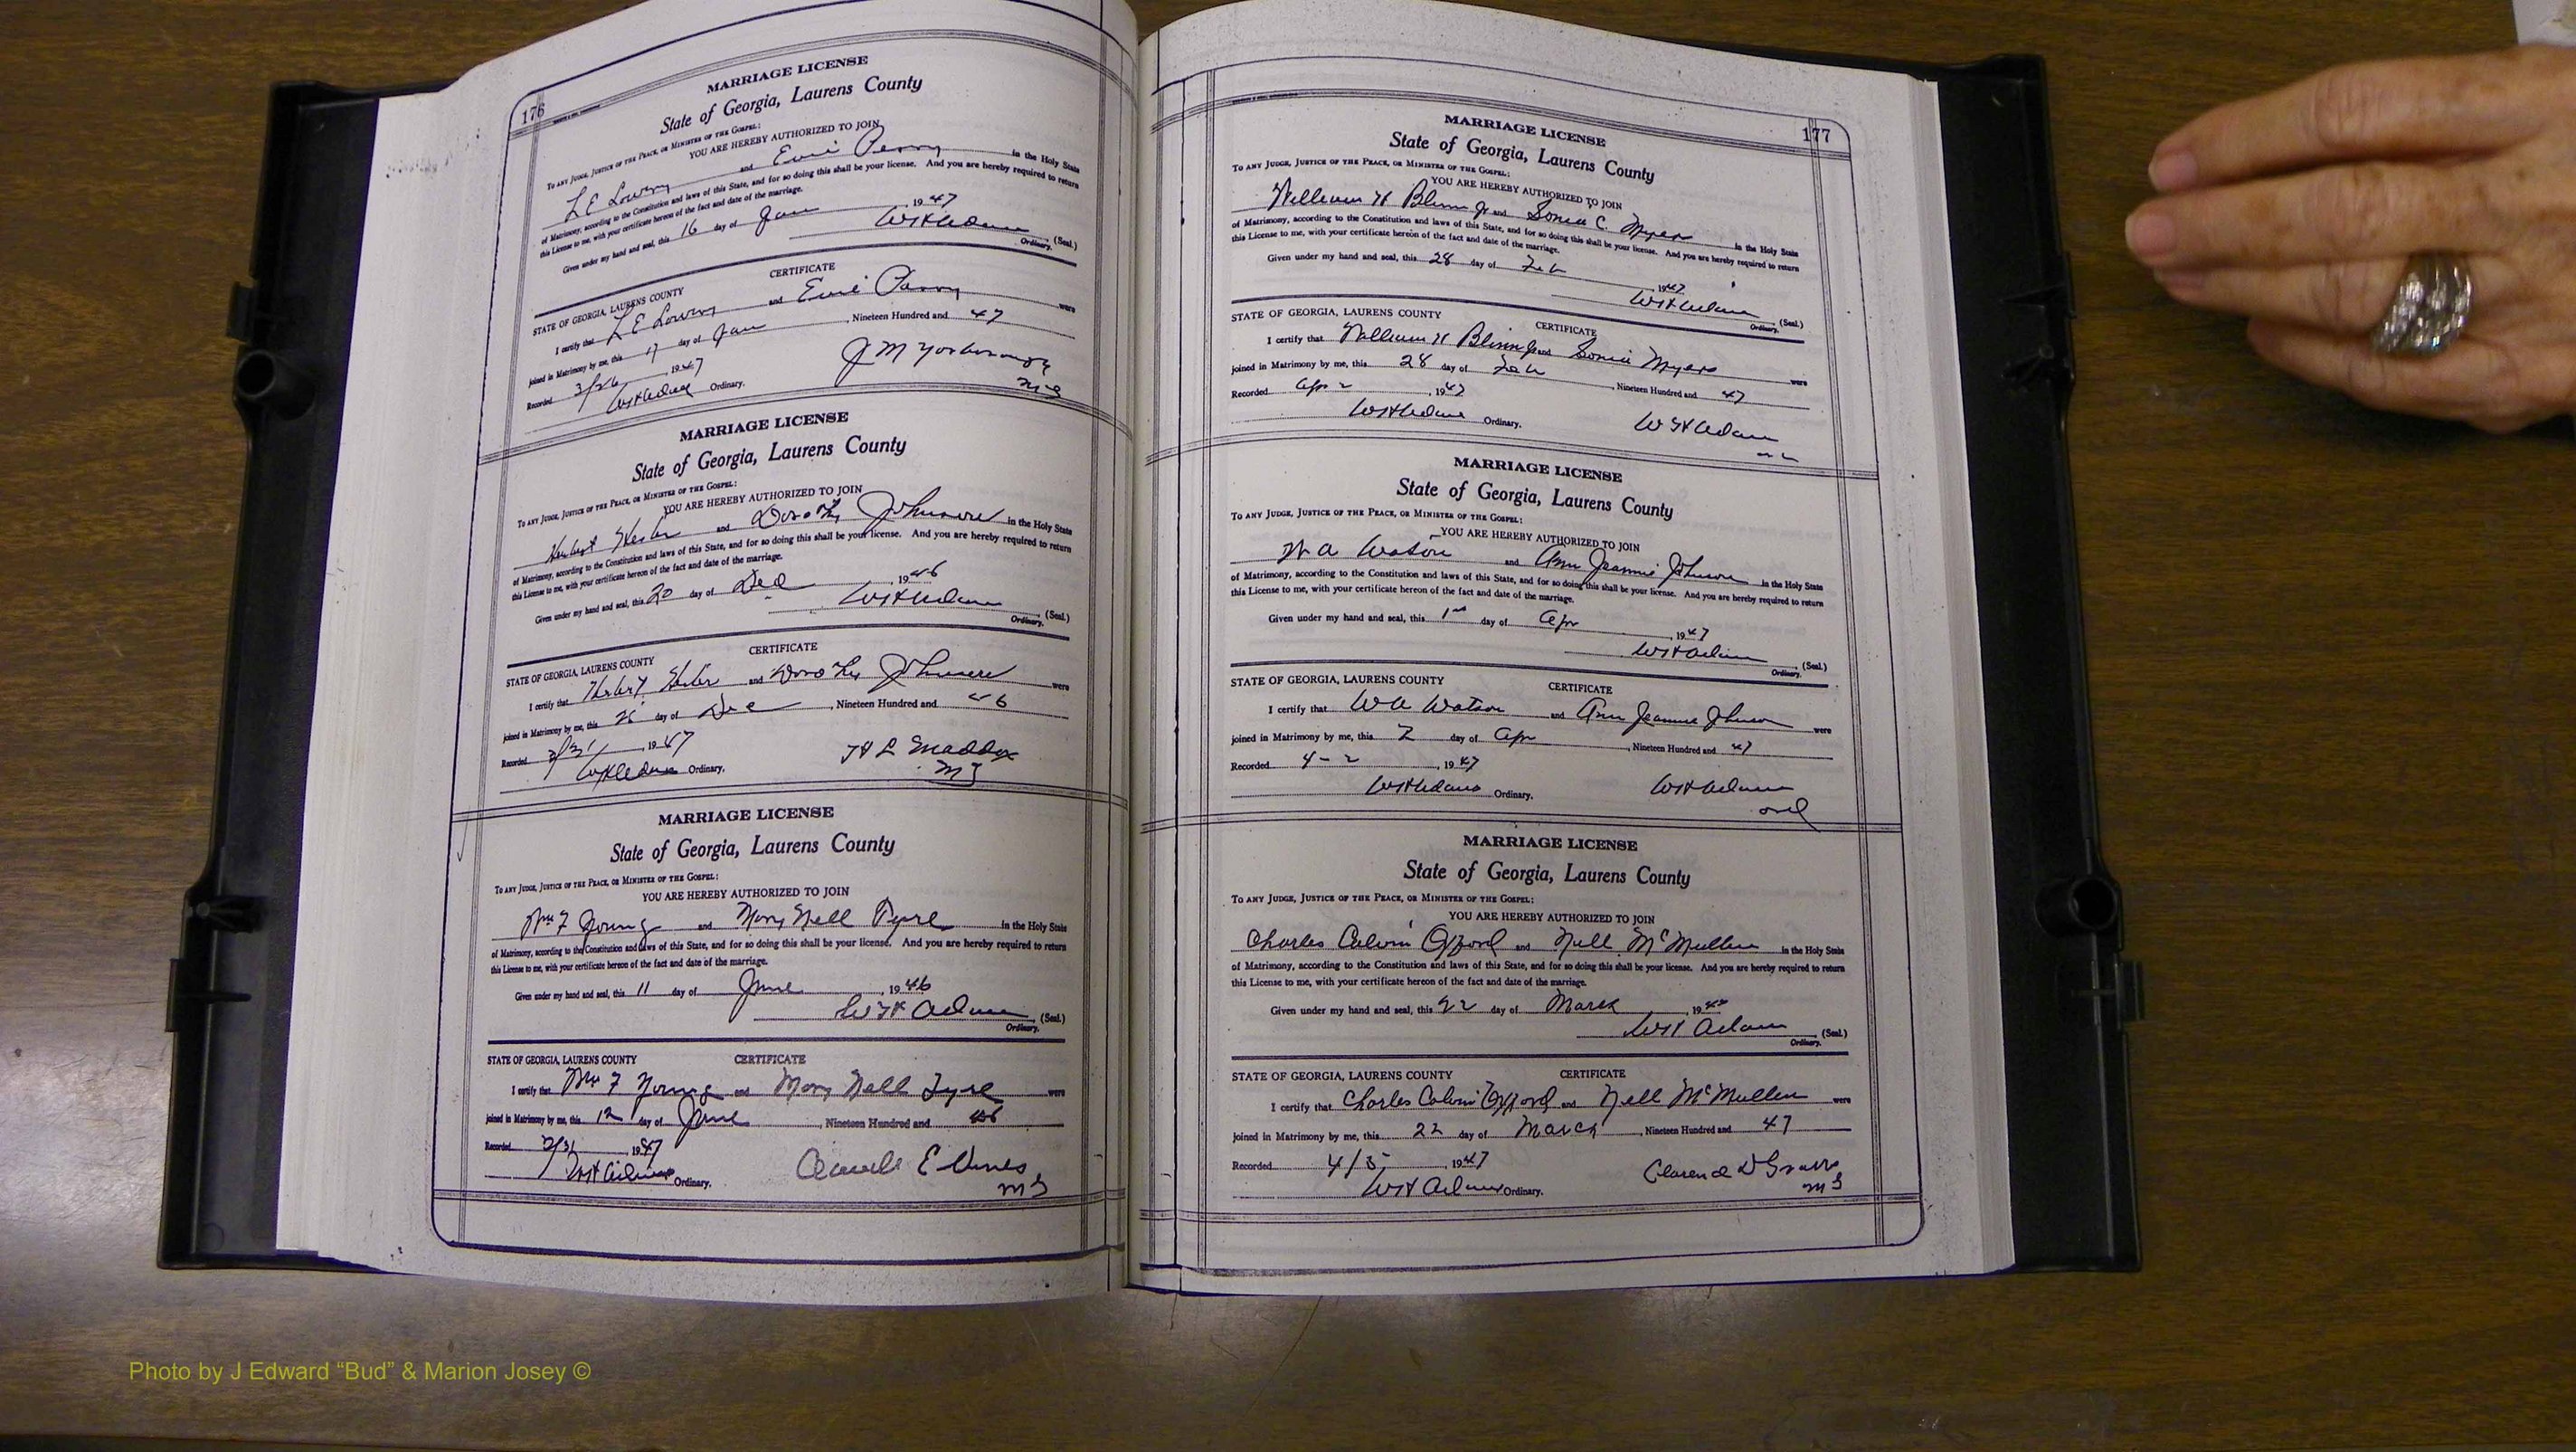 176
MARRIAGE LICENSE
State of Georgia, Laurens County
TO ANY JUDGE, JUSTICE OF THE PEACE, OR MINISTER OF THE GOSPEL:
YOU ARE HEREBY AUTHORIZED TO JOIN
L E Lowery and Evie Perry in the Holy State
of Matrimony, according to the Constitution and laws of this State, and for so doing this shall be your license. And you are hereby required to return
this License to me, with your certificate hereon of the fact and date of the marriage.
Given under my hand and seal, this 16 day of Jan 1947
WH Adams (Seal.)
Ordinary.
CERTIFICATE
STATE OF GEORGIA, LAURENS COUNTY
I certify that L E Lowery and Evie Perry were
joined in Matrimony by me, this 17 day of Jan, Nineteen Hundred and 47
Recorded 3/26, 1947
WH Adams Ordinary.
J M Yarborough
MG
MARRIAGE LICENSE
State of Georgia, Laurens County
TO ANY JUDGE, JUSTICE OF THE PEACE, OR MINISTER OF THE GOSPEL:
YOU ARE HEREBY AUTHORIZED TO JOIN
Herbert Hester and Dorothy in the Holy State
of Matrimony, according to the Constitution and laws of this State, and for so doing this shall be your license. And you are hereby required to return
this License to me, with your certificate hereon of the fact and date of the marriage.
Given under my hand and seal, this 20 day of Dec, 1946
WH Adams (Seal.)
Ordinary.
CERTIFICATE
STATE OF GEORGIA, LAURENS COUNTY
I certify that Herbert Hester and Dorothy were
joined in Matrimony by me, this day of Dec, Nineteen Hundred and 46
Recorded 3/31, 1947
WH Adams Ordinary.
H L Maddox
MG
MARRIAGE LICENSE
State of Georgia, Laurens County
TO ANY JUDGE, JUSTICE OF THE PEACE, OR MINISTER OF THE GOSPEL:
YOU ARE HEREBY AUTHORIZED TO JOIN
Wm F Young and Mary Nell Tyre in the Holy State
of Matrimony, according to the Constitution and laws of this State, and for so doing this shall be your license. And you are hereby required to return
this License to me, with your certificate hereon of the fact and date of the marriage.
Given under my hand and seal, this 11 day of June, 1946
WH Adams (Seal.)
Ordinary.
STATE OF GEORGIA, LAURENS COUNTY CERTIFICATE
I certify that Wm F Young and Mary Nell Tyre were
joined in Matrimony by me, this 12 day of June, Nineteen Hundred and 46
Recorded 3/31, 1947
WH Adams Ordinary.
E Vines
MG
177
MARRIAGE LICENSE
State of Georgia, Laurens County
TO ANY JUDGE, JUSTICE OF THE PEACE, OR MINISTER OF THE GOSPEL:
YOU ARE HEREBY AUTHORIZED TO JOIN
William H Blinn Jr and Sonia C. Myers in the Holy State
of Matrimony, according to the Constitution and laws of this State, and for so doing this shall be your license. And you are hereby required to return
this License to me, with your certificate hereon of the fact and date of the marriage.
Given under my hand and seal, this 28 day of Feb, 1947
WH Adams (Seal.)
Ordinary.
STATE OF GEORGIA, LAURENS COUNTY CERTIFICATE
I certify that William H Blinn Jr and Sonia Myers were
joined in Matrimony by me, this 28 day of Feb, Nineteen Hundred and 47
Recorded Apr 2, 1947
WH Adams Ordinary.
WH Adams
MARRIAGE LICENSE
State of Georgia, Laurens County
TO ANY JUDGE, JUSTICE OF THE PEACE, OR MINISTER OF THE GOSPEL:
YOU ARE HEREBY AUTHORIZED TO JOIN
W A Watson and Ann Jeannie Johnson in the Holy State
of Matrimony, according to the Constitution and laws of this State, and for so doing this shall be your license. And you are hereby required to return
this License to me, with your certificate hereon of the fact and date of the marriage.
Given under my hand and seal, this 1st day of Apr, 1947
WH Adams (Seal.)
Ordinary.
STATE OF GEORGIA, LAURENS COUNTY CERTIFICATE
I certify that W A Watson and Ann Jeannie Johnson were
joined in Matrimony by me, this 2 day of Apr, Nineteen Hundred and 47
Recorded 4-2, 1947
WH Adams Ordinary.
WH Adams
Ord
MARRIAGE LICENSE
State of Georgia, Laurens County
TO ANY JUDGE, JUSTICE OF THE PEACE, OR MINISTER OF THE GOSPEL:
YOU ARE HEREBY AUTHORIZED TO JOIN
Charles Calvin Oxford and Nell McMullen in the Holy State
of Matrimony, according to the Constitution and laws of this State, and for so doing this shall be your license. And you are hereby required to return
this License to me, with your certificate hereon of the fact and date of the marriage.
Given under my hand and seal, this 22 day of March, 1947
WH Adams (Seal.)
Ordinary.
STATE OF GEORGIA, LAURENS COUNTY CERTIFICATE
I certify that Charles Calvin Oxford and Nell McMullen were
joined in Matrimony by me, this 22 day of March, Nineteen Hundred and 47
Recorded 4/5, 1947
WH Adams Ordinary.
Clarence D Graves
MG
Photo by J Edward “Bud” & Marion Josey ©